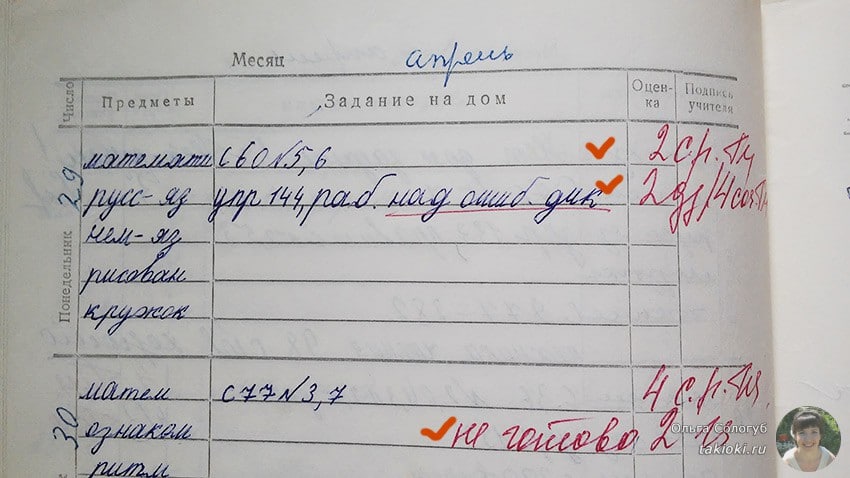 Месяц апрель
Число Предметы Задание на дом Оцен-ка Подпись учителя
Понедельник 29
математи с 60 №5,6 2 с.р.
русс-яз упр 144, раб. над ошиб. дик 2 /4
нем-яз
рисован
кружок
30
матем с 77 №3,7 4 с.р.
ознаком не готова 2
ритм
Ольга Сологуб
takioki.ru